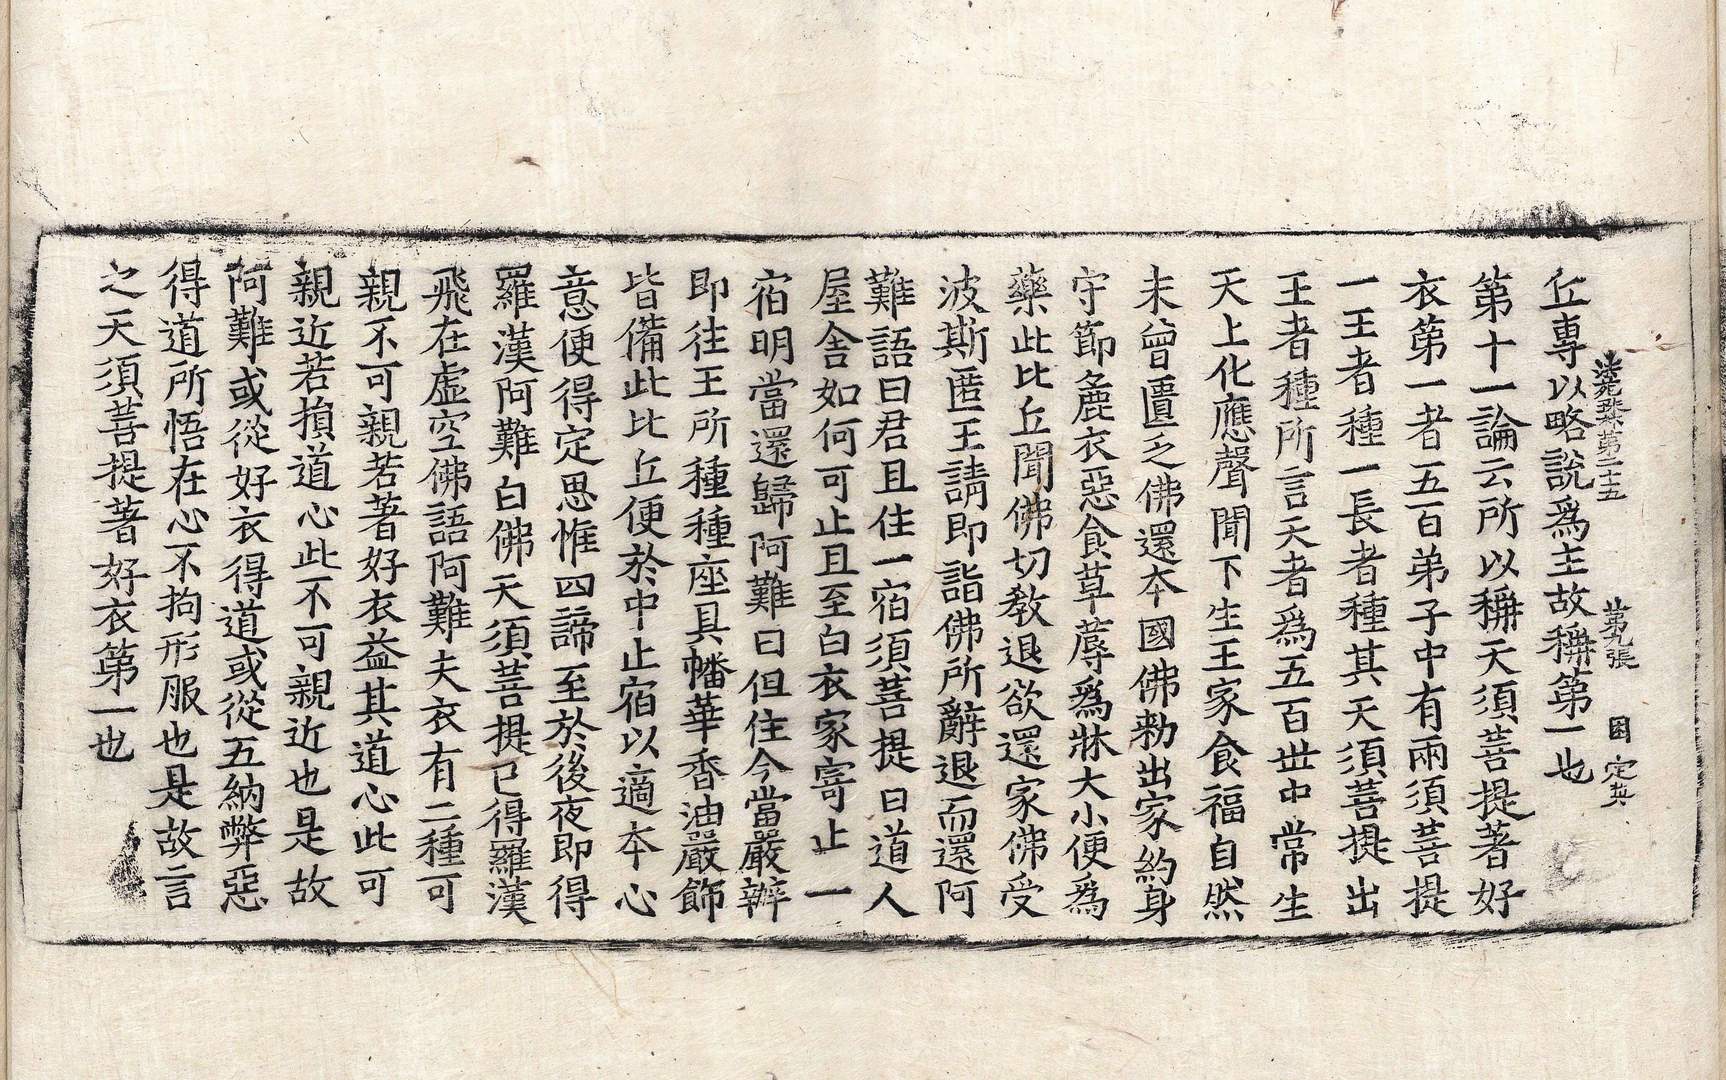 丘專以略說為主故稱第一也
法苑珠第二十五 第九張 囷 定英
第十一論云所以稱天須菩提著好
衣第一者五百弟子中有兩須菩提
一王者種一長者種其天須菩提出
王者種所言天者為五百世中常生
天上化應聲聞下生王家食福自然
未曾匱乏佛還本國佛勑出家約身
守節麁衣惡食草蓐為牀大小便為
藥此比丘聞佛切教退欲還家佛受
波斯匿王請即詣佛所辭退而還阿
難語曰君且住一宿須菩提曰道人
屋舍如何可止且至白衣家寄止一
宿明當還歸阿難曰但住今當嚴辦
即往王所種種座具幡華香油嚴飾
皆備此比丘便於中止宿以適本心
意便得定思惟四諦至於後夜即得
羅漢阿難白佛天須菩提已得羅漢
飛在虛空佛語阿難夫衣有二種可
親不可親若著好衣益其道心此可
親近若損道心此不可親近也是故
阿難或從好衣得道或從五納弊惡
得道所悟在心不拘形服也是故言
之天須菩提著好衣第一也